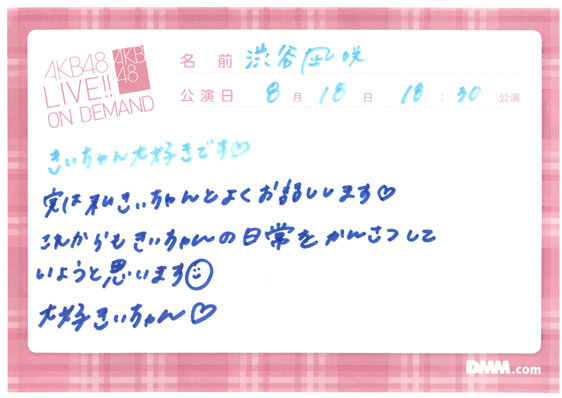 AKB48
LIVE!!
ON DEMAND
AKB
48
名前 渋谷凪咲
公演日 8月18日 18:30公演
きぃちゃん大好きです♡
実は私きぃちゃんとよくお話しします♡
これからもきぃちゃんの日常をかんさつして
いようと思います☺
大好きぃちゃん♡
DMM.com